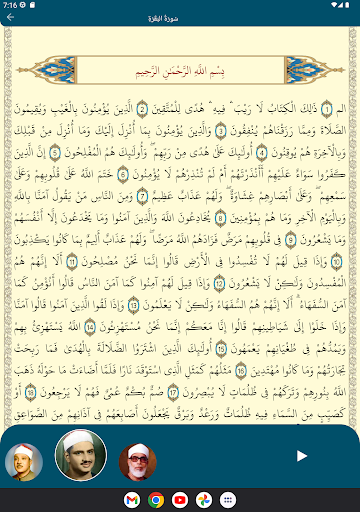 7:16
سُورَةُ البَقَرَةِ
بِسْمِ اللَّهِ الرَّحْمَٰنِ الرَّحِيمِ
الم 1 ذَٰلِكَ الْكِتَابُ لَا رَيْبَ ۛ فِيهِ ۛ هُدًى لِلْمُتَّقِينَ 2 الَّذِينَ يُؤْمِنُونَ بِالْغَيْبِ وَيُقِيمُونَ
الصَّلَاةَ وَمِمَّا رَزَقْنَاهُمْ يُنْفِقُونَ 3 وَالَّذِينَ يُؤْمِنُونَ بِمَا أُنْزِلَ إِلَيْكَ وَمَا أُنْزِلَ مِنْ قَبْلِكَ
وَبِالْآخِرَةِ هُمْ يُوقِنُونَ 4 أُولَٰئِكَ عَلَىٰ هُدًى مِنْ رَبِّهِمْ ۖ وَأُولَٰئِكَ هُمُ الْمُفْلِحُونَ 5 إِنَّ الَّذِينَ
كَفَرُوا سَوَاءٌ عَلَيْهِمْ أَأَنْذَرْتَهُمْ أَمْ لَمْ تُنْذِرْهُمْ لَا يُؤْمِنُونَ 6 خَتَمَ اللَّهُ عَلَىٰ قُلُوبِهِمْ وَعَلَىٰ
سَمْعِهِمْ ۖ وَعَلَىٰ أَبْصَارِهِمْ غِشَاوَةٌ ۖ وَلَهُمْ عَذَابٌ عَظِيمٌ 7 وَمِنَ النَّاسِ مَنْ يَقُولُ آمَنَّا بِاللَّهِ
وَبِالْيَوْمِ الْآخِرِ وَمَا هُمْ بِمُؤْمِنِينَ 8 يُخَادِعُونَ اللَّهَ وَالَّذِينَ آمَنُوا وَمَا يَخْدَعُونَ إِلَّا أَنْفُسَهُمْ
وَمَا يَشْعُرُونَ 9 فِي قُلُوبِهِمْ مَرَضٌ فَزَادَهُمُ اللَّهُ مَرَضًا ۖ وَلَهُمْ عَذَابٌ أَلِيمٌ بِمَا كَانُوا يَكْذِبُونَ
10 وَإِذَا قِيلَ لَهُمْ لَا تُفْسِدُوا فِي الْأَرْضِ قَالُوا إِنَّمَا نَحْنُ مُصْلِحُونَ 11 أَلَا إِنَّهُمْ هُمُ
الْمُفْسِدُونَ وَلَٰكِنْ لَا يَشْعُرُونَ 12 وَإِذَا قِيلَ لَهُمْ آمِنُوا كَمَا آمَنَ النَّاسُ قَالُوا أَنُؤْمِنُ كَمَا
آمَنَ السُّفَهَاءُ ۗ أَلَا إِنَّهُمْ هُمُ السُّفَهَاءُ وَلَٰكِنْ لَا يَعْلَمُونَ 13 وَإِذَا لَقُوا الَّذِينَ آمَنُوا قَالُوا آمَنَّا
وَإِذَا خَلَوْا إِلَىٰ شَيَاطِينِهِمْ قَالُوا إِنَّا مَعَكُمْ إِنَّمَا نَحْنُ مُسْتَهْزِئُونَ 14 اللَّهُ يَسْتَهْزِئُ بِهِمْ
وَيَمُدُّهُمْ فِي طُغْيَانِهِمْ يَعْمَهُونَ 15 أُولَٰئِكَ الَّذِينَ اشْتَرَوُا الضَّلَالَةَ بِالْهُدَىٰ فَمَا رَبِحَتْ
تِجَارَتُهُمْ وَمَا كَانُوا مُهْتَدِينَ 16 مَثَلُهُمْ كَمَثَلِ الَّذِي اسْتَوْقَدَ نَارًا فَلَمَّا أَضَاءَتْ مَا حَوْلَهُ ذَهَبَ
اللَّهُ بِنُورِهِمْ وَتَرَكَهُمْ فِي ظُلُمَاتٍ لَا يُبْصِرُونَ 17 صُمٌّ بُكْمٌ عُمْيٌ فَهُمْ لَا يَرْجِعُونَ 18 أَوْ
كَصَيِّبٍ مِنَ السَّمَاءِ فِيهِ ظُلُمَاتٌ وَرَعْدٌ وَبَرْقٌ يَجْعَلُونَ أَصَابِعَهُمْ فِي آذَانِهِمْ مِنَ الصَّوَاعِقِ